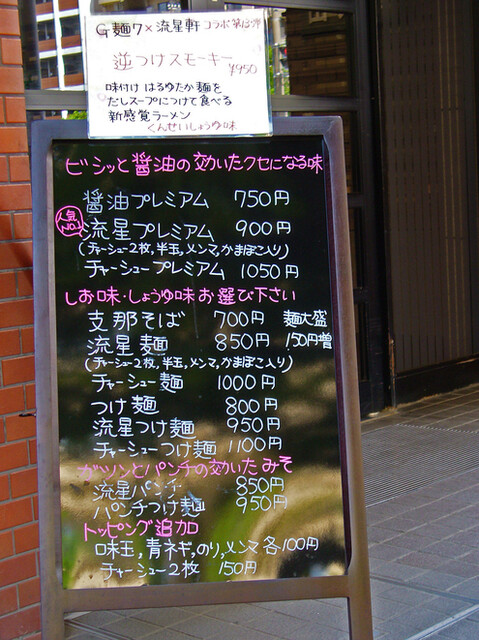 G麺7×流星軒 コラボ第13弾
逆つけスモーキー
¥950
味付け はるゆたか麺を
だしスープにつけて食べる
新感覚ラーメン
くんせいしょうゆ味
ビシッと醤油の効いたクセになる味
醤油プレミアム 750円
人気No.1
流星プレミアム 900円
(チャーシュー2枚,半玉,メンマ,かまぼこ入り)
チャーシュープレミアム 1050円
しお味・しょうゆ味お選び下さい
支那そば 700円 麺大盛
流星麺 850円 150円増
(チャーシュー2枚,半玉,メンマ,かまぼこ入り)
チャーシュー麺 1000円
つけ麺 800円
流星つけ麺 950円
チャーシューつけ麺 1100円
ガツンとパンチの効いたみそ
流星パンチ 850円
パンチつけ麺 950円
トッピング追加
味玉,青ネギ,のり,メンマ各100円
チャーシュー2枚 150円